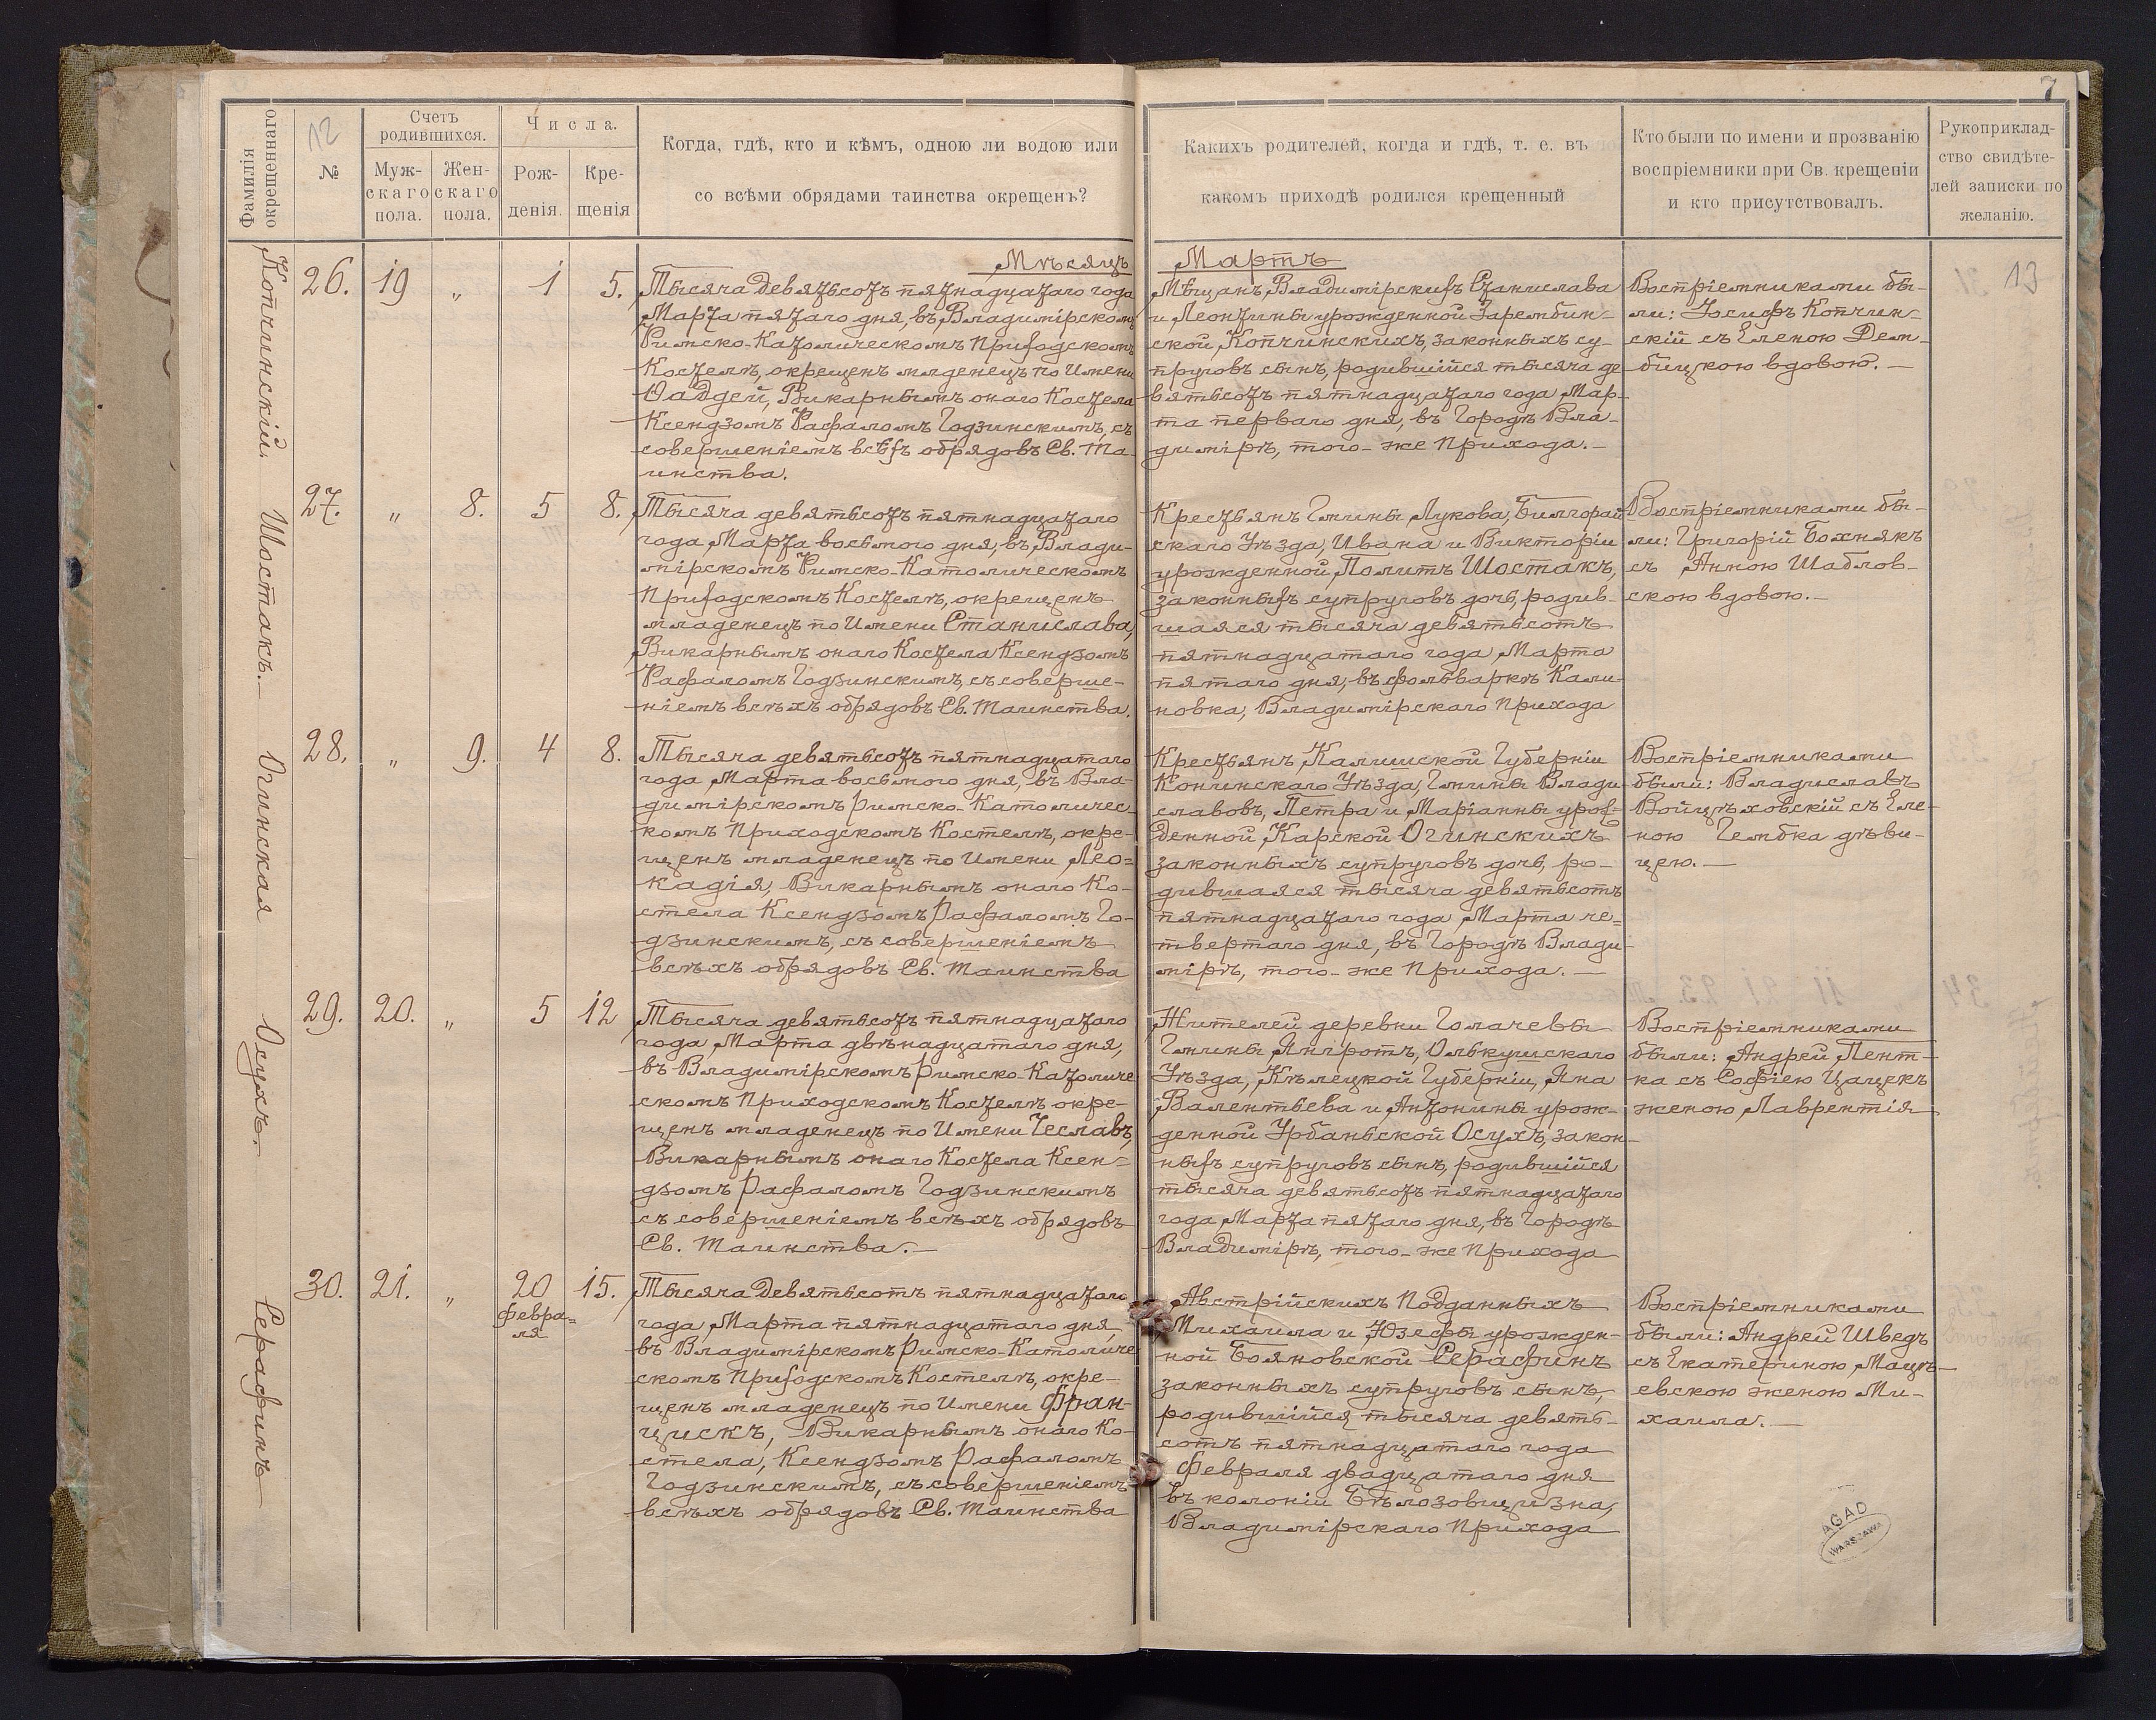 7
12
13
Фамилія окрещеннаго
№
Счетъ родившихся.
Муж-
скаго
пола.
Жен-
скаго
пола.
Числа.
Рож-
денія.
Кре-
щенія
Когда, гдѣ, кто и кѣмъ, одною ли водою или
со всѣми обрядами таинства окрещенъ?
Какихъ родителей, когда и гдѣ, т. е. въ
какомъ приходѣ родился крещенный
Кто были по имени и прозванію
воспріемники при Св. крещеніи
и кто присутствовалъ.
Рукоприклад-
ство свидѣте-
лей записки по
желанію.
Мѣсяцъ Мартъ
Копчинскій.
26. 19 „ 1 5.
Тысяча девятьсотъ пятнадцатаго года
Марта пятаго дня, въ Владимірскомъ
Римско-Католическомъ Приходскомъ
Костелѣ, окрещенъ младенецъ по Имени
Фаддей, Викарнымъ онаго Костела
Ксендзомъ Рафаломъ Годзинскимъ, съ
совершеніемъ всѣхъ обрядовъ Св. Та-
инства.
Мѣщанъ Владимірскихъ Станислава
и Леонтины урожденной Зарембин-
ской, Копчинскихъ, законныхъ су-
пруговъ сынъ, родившійся тысяча де
вятьсотъ пятнадцатаго года Мар-
та перваго дня, въ Городѣ Вла-
димірѣ, того-же Прихода.—
Воспріемниками бы-
ли: Іосифъ Копчин-
скій съ Еленою Дем-
бицкою вдовою.—
Шостакъ.—
27. „ 8. 5 8.
Тысяча девятьсотъ пятнадцатаго
года Марта восьмого дня, въ Влади-
мірскомъ Римско-Католическомъ
Приходскомъ Костелѣ, окрещенъ
младенецъ по Имени Станислава,
Викарнымъ онаго Костела Ксендзомъ
Рафаломъ Годзинскимъ, съ соверше-
ніемъ всѣхъ обрядовъ Св. Таинства.
Крестьянъ Гмины Лукова, Билгорай
скаго Уѣзда, Ивана и Викторіи
урожденной Политъ Шостакъ,
законныхъ супруговъ дочь, родив-
шаяся тысяча девятьсотъ
пятнадцатаго года Марта
пятаго дня, въ фольваркѣ Кали-
новка, Владимірскаго Прихода
Воспріемниками бы-
ли: Григорій Бохнякъ
съ Анною Шаблов-
скою вдовою.—
Огинская
28. „ 9. 4 8.
Тысяча девятьсотъ пятнадцатаго
года Марта восьмого дня, въ Вла-
димірскомъ Римско-Католичес-
комъ Приходскомъ Костелѣ, окре-
щенъ младенецъ по Имени Лео-
кадія, Викарнымъ онаго Ко-
стела Ксендзомъ Рафаломъ Го-
дзинскимъ, съ совершеніемъ
всѣхъ обрядовъ Св. Таинства
Крестьянъ, Калишской Губерніи
Конинскаго Уѣзда, Гмины Влади
славовъ, Петра и Маріанны урож-
денной Карской Огинскихъ
законныхъ супруговъ дочь, ро-
дившаяся тысяча девятьсотъ
пятнадцатаго года Марта че-
твертаго дня, въ Городѣ Влади-
мірѣ, того-же Прихода.—
Воспріемниками
были: Владиславъ
Войцѣховскій съ Еле-
ною Гембка дѣви-
цею.—
Осухъ.—
29. 20. „ 5 12
Тысяча девятьсотъ пятнадцатаго
года Марта двѣнадцатаго дня,
въ Владимірскомъ Римско-Католиче
скомъ Приходскомъ Костелѣ окре-
щенъ младенецъ по Имени Чеславъ,
Викарнымъ онаго Костела Ксен-
дзомъ Рафаломъ Годзинскимъ
съ совершеніемъ всѣхъ обрядовъ
Св. Таинства.—
Жителей деревни Голачевы
Гмины Янгротъ, Олькушскаго
Уѣзда, Кѣлецкой Губерніи, Яна
Валентьева и Антонины урож-
денной Урбаньской Осухъ, закон-
ныхъ супруговъ сынъ, родившійся
тысяча девятьсотъ пятнадцатаго
года Марта пятаго дня, въ Городѣ
Владимірѣ, того-же Прихода
Воспріемниками
были: Андрей Пент-
ка съ Софіею Цацекъ
женою Лаврентія
Серафинъ
30. 21. „ 20 15.
Февра-
ля
Тысяча девятьсотъ пятнадцатаго
года Марта пятнадцатаго дня,
въ Владимірскомъ Римско-Католиче
скомъ Приходскомъ Костелѣ, окре-
щенъ младенецъ по Имени Фран-
цискъ, Викарнымъ онаго Ко-
стела, Ксендзомъ Рафаломъ
Годзинскимъ, съ совершеніемъ
всѣхъ обрядовъ Св. Таинства
Австрійскихъ Подданныхъ
Михаила и Юзефы урожден-
ной Бояновской Серафинъ
законныхъ супруговъ сынъ,
родившійся тысяча девять-
сотъ пятнадцатаго года
Февраля двадцатаго дня
въ колоніи Бѣлозовщизна,
Владимірскаго Прихода
Воспріемниками
были: Андрей Шведъ
съ Екатериною Мацѣ-
евскою женою Ми-
хаила.—
AGAD
WARSZAWA